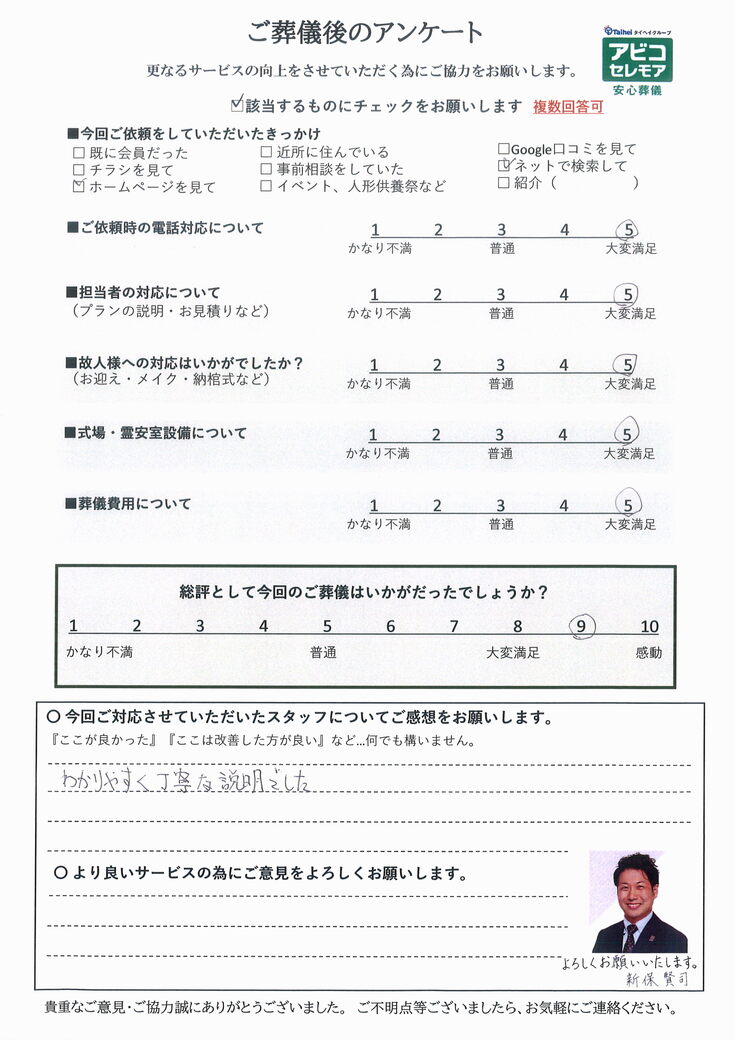 ご葬儀後のアンケート
Taihei タイヘイグループ
アビコ
セレモア
安心葬儀
更なるサービスの向上をさせていただく為にご協力をお願いします。
☑該当するものにチェックをお願いします 複数回答可
■今回ご依頼をしていただいたきっかけ
□ 既に会員だった □ 近所に住んでいる □Google口コミを見て
□ チラシを見て □ 事前相談をしていた ☑ネットで検索して
☑ ホームページを見て □ イベント、人形供養祭など □ 紹介（ ）
■ご依頼時の電話対応について 1 2 3 4 5
かなり不満 普通 大変満足
■担当者の対応について 1 2 3 4 5
（プランの説明・お見積りなど） かなり不満 普通 大変満足
■故人様への対応はいかがでしたか？ 1 2 3 4 5
（お迎え・メイク・納棺式など） かなり不満 普通 大変満足
■式場・霊安室設備について 1 2 3 4 5
かなり不満 普通 大変満足
■葬儀費用について 1 2 3 4 5
かなり不満 普通 大変満足
総評として今回のご葬儀はいかがだったでしょうか？
1 2 3 4 5 6 7 8 9 10
かなり不満 普通 大変満足 感動
〇 今回ご対応させていただいたスタッフについてご感想をお願いします。
『ここが良かった』『ここは改善した方が良い』など...何でも構いません。
わかりやすく丁寧な説明でした
〇 より良いサービスの為にご意見をよろしくお願いします。
よろしくお願いいたします。
新保 賢司
貴重なご意見・ご協力誠にありがとうございました。 ご不明点等ございましたら、お気軽にご連絡ください。